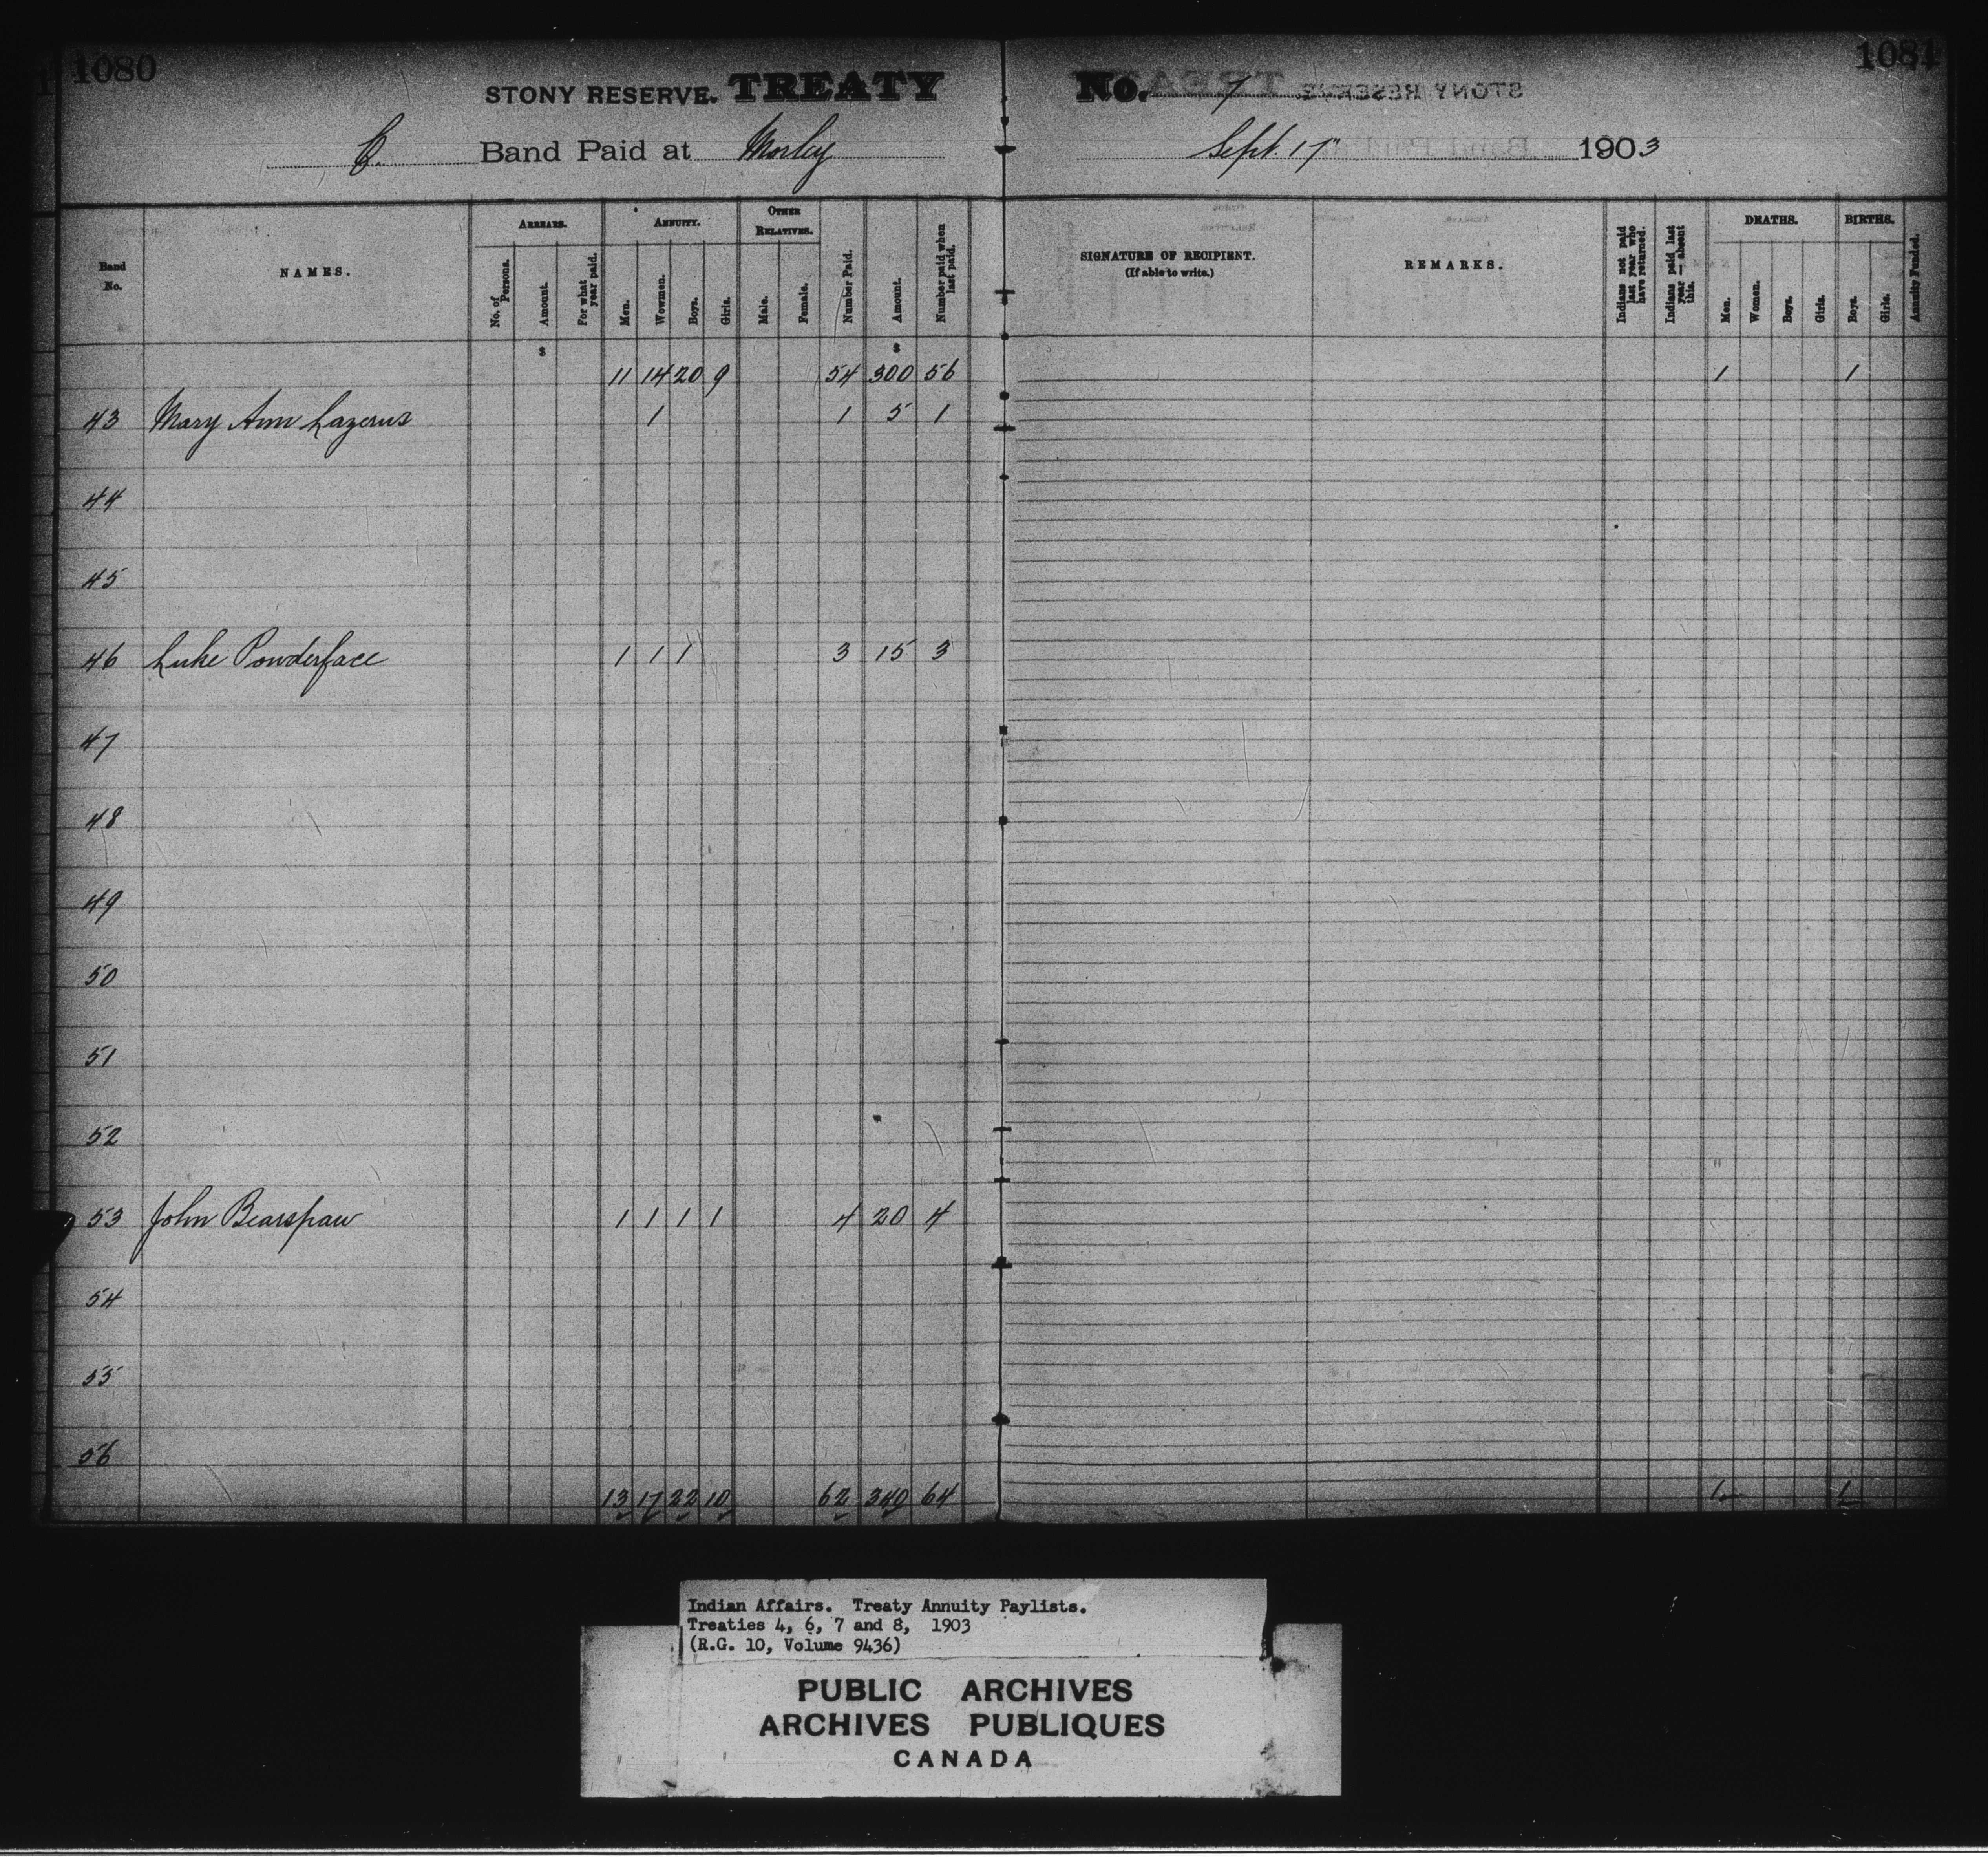 1080
1081
STONY RESERVE. TREATY No. 7
C. Band Paid at Morley Sept. 17" 1903
Band No.
NAMES.
ARREARS.
No. of Persons.
Amount.
For what year paid.
ANNUITY.
Men.
Wowmen.
Boys.
Girls.
OTHER RELATIVES.
Male.
Female.
Number Paid.
Amount.
Number paid when last paid.
SIGNATURE OF RECIPIENT.
(If able to write.)
REMARKS.
Indians not paid last year who have returned.
Indians paid last year — absent this.
DEATHS.
Men.
Women.
Boys.
Girls.
BIRTHS.
Boys.
Girls.
Annuity Funded.
$ $
11 14 20 9 54 300 56 1 1
43 Mary Ann Lazerus 1 1 5 1
44
45
46 Luke Powderface 1 1 1 3 15 3
47
48
49
50
51
52
53 John Bearspaw 1 1 1 1 4 20 4
54
55
56
13 17 22 10 62 340 64 1 1
Indian Affairs. Treaty Annuity Paylists.
Treaties 4, 6, 7 and 8, 1903
(R.G. 10, Volume 9436)
PUBLIC ARCHIVES
ARCHIVES PUBLIQUES
CANADA